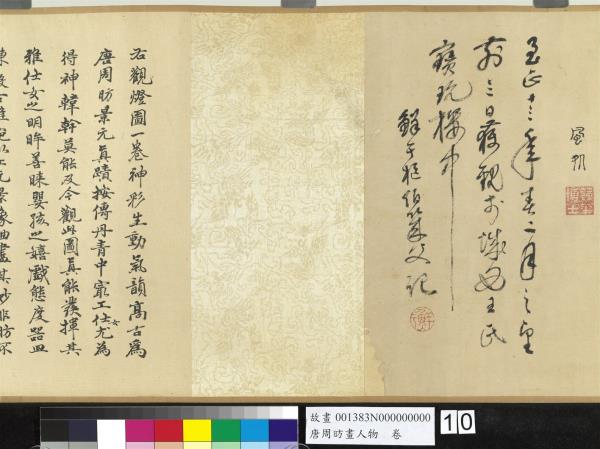 至正十三年春二月之望
前三日獲觀於王氏
寶玩樓中
鮮于樞伯幾父記
右觀燈圖一卷神彩生動氣韻高古為
唐周昉景元真蹟按傳丹青中㝡工仕女尤為
得神韓幹莫能及今觀此圖真能發揮其
雅仕女之明眸善睞嬰孩之嬉戲態度器皿
故畫 001383N000000000
唐周昉畫人物 卷
10